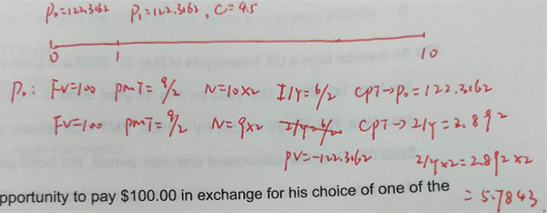 P₀=122.3162 P₁=122.3162, C=4.5
0 1 10
P₀: FV=100 PMT=9/2 N=10×2 I/Y=6/2 CPT→P₀=122.3162
FV=100 PMT=9/2 N=9×2 I/Y=6/2 CPT→I/Y=2.892
PV=-122.3162 I/Y×2=2.892×2
pportunity to pay $100.00 in exchange for his choice of one of the =5.7843